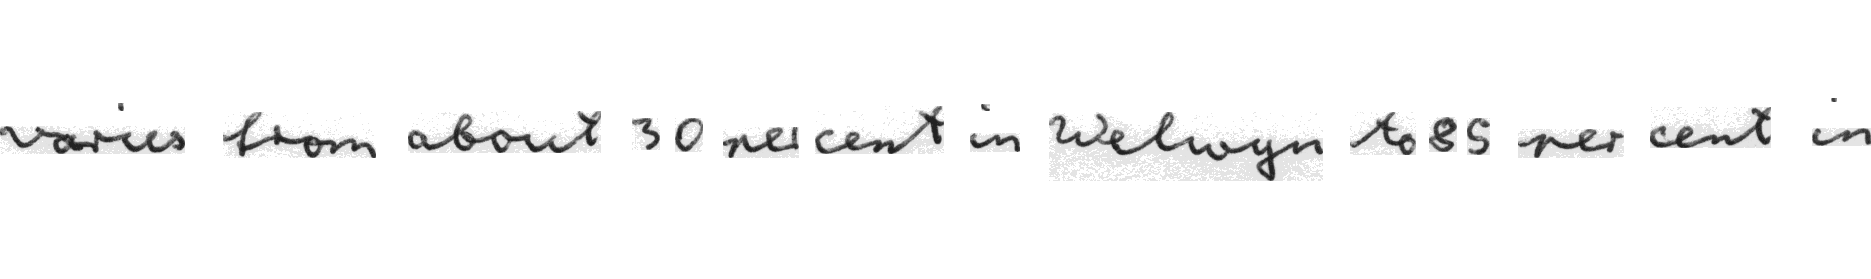 varies from about 30 per cent in Welwyn to 85 per cent in